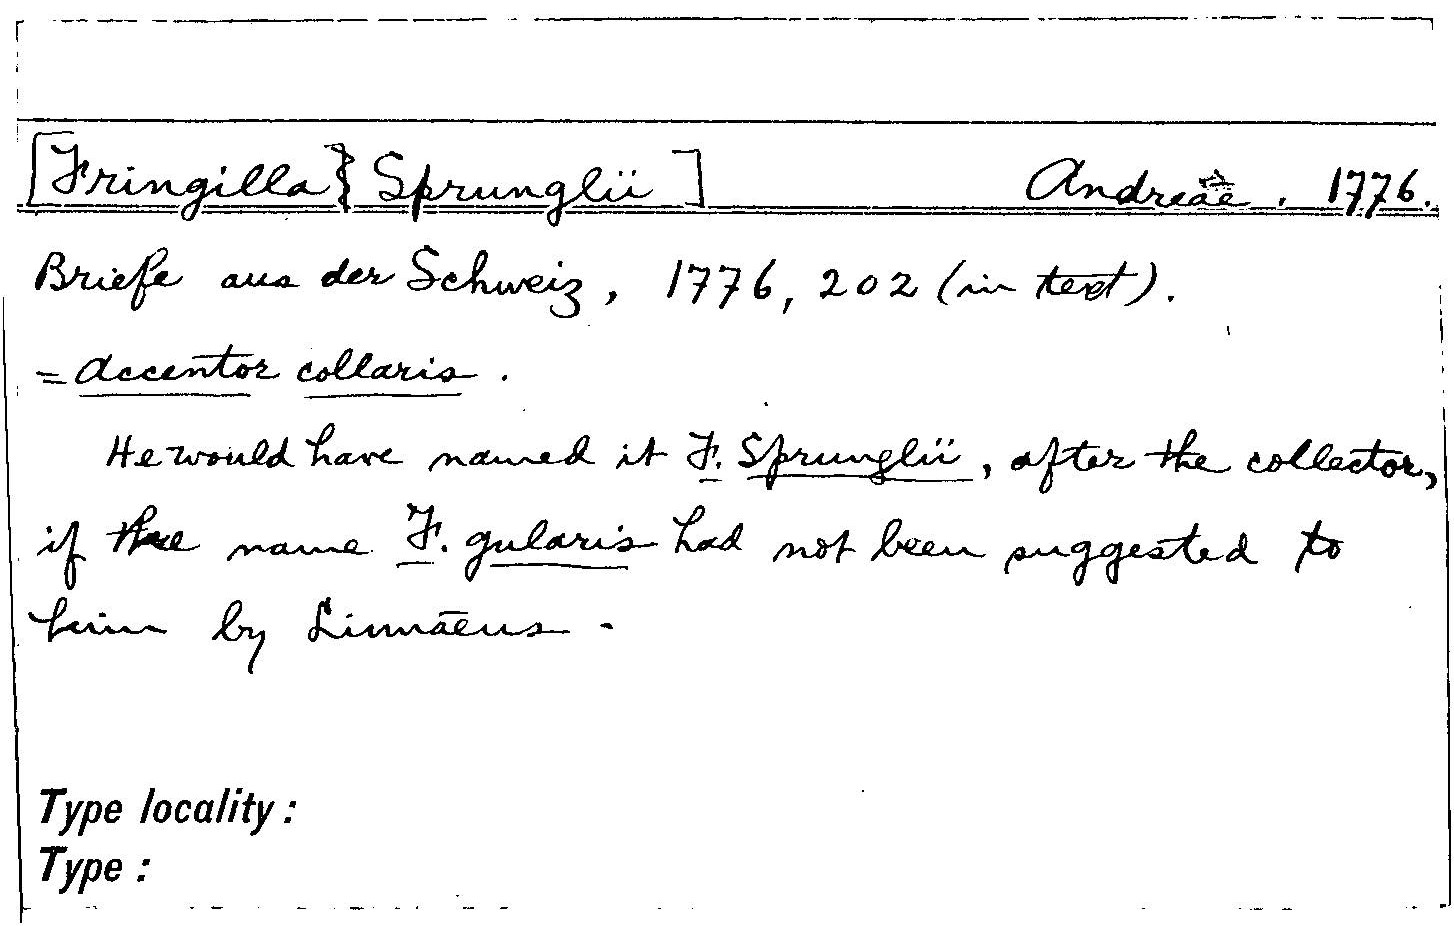 [Fringilla] Sprunglii] Andreae. 1776.
Briefe aus der Schweiz, 1776, 202 (in text).
= Accentor collaris.
He would have named it F. Sprunglii, after the collector,
if the name F. gularis had not been suggested to
him by Linnaeus.
Type locality:
Type: